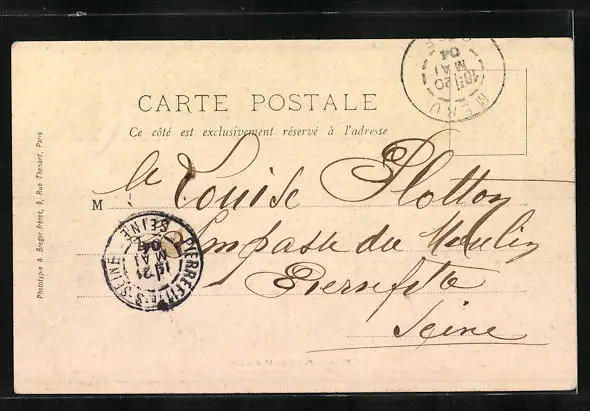 CARTE POSTALE
Ce côté est exclusivement réservé à l'adresse
M lle Louise Plotton
8 Impasse du Moulin
Pierrefitte
Seine
MERU
20 MAI 04
PIERREFITTE-S-SEINE
SEINE
21 MAI 04
Phototypie A. Breger frères, 9, Rue Thénard, Paris